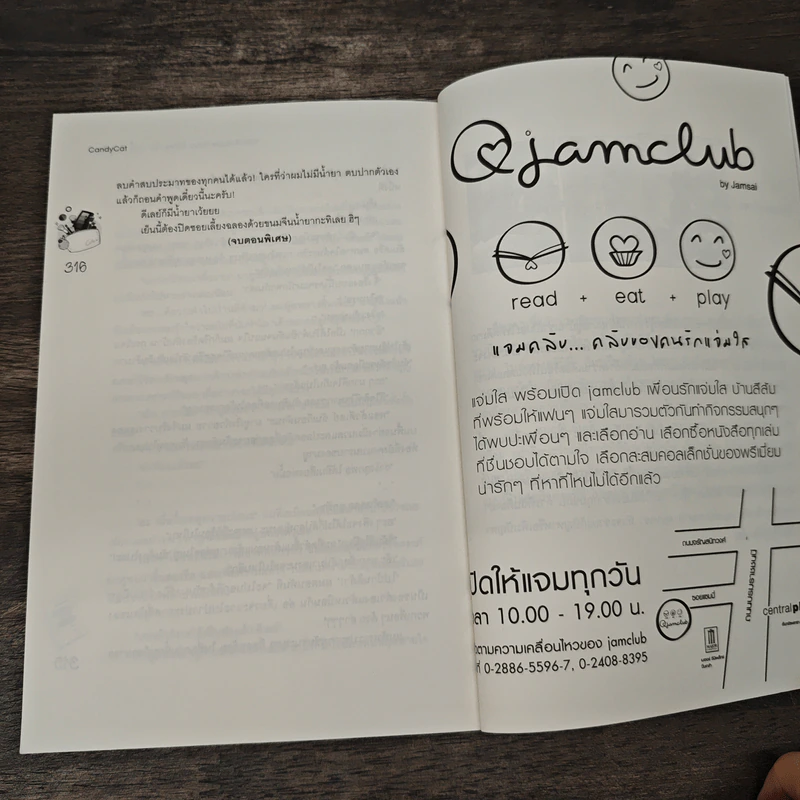 CandyCat
ลบคำสบประมาทของทุกคนได้แล้ว! ใครที่ว่าผมไม่มีน้ำยา ตบปากตัวเอง
แล้วก็ถอนคำพูดเดี๋ยวนี้นะครับ!
ดีเลย์ก็มีน้ำยาเว้ยยย
เย็นนี้ต้องปิดซอยเลี้ยงฉลองด้วยขนมจีนน้ำยากะทิเลย ฮิๆ
(จบตอนพิเศษ)
316
jamclub
by Jamsai
read + eat + play
แจมคลับ... คลับของคนรักแจ่มใส
แจ่มใส พร้อมเปิด jamclub เพื่อนรักแจ่มใส บ้านสีส้ม
ที่พร้อมให้แฟนๆ แจ่มใสมารวมตัวกันทำกิจกรรมสนุกๆ
ได้พบปะเพื่อนๆ และเลือกอ่าน เลือกซื้อหนังสือทุกเล่ม
ที่ชื่นชอบได้ตามใจ เลือกสะสมคอลเล็กชั่นของพรีเมี่ยม
น่ารักๆ ที่หาที่ไหนไม่ได้อีกแล้ว
ปิดให้แจมทุกวัน
ลา 10.00 - 19.00 น.
ตามความเคลื่อนไหวของ jamclub
ที่ 0-2886-5596-7, 0-2408-8395
ถนนจรัญสนิทวงศ์
ซอยแฮมมี่
jamclub
centralpl